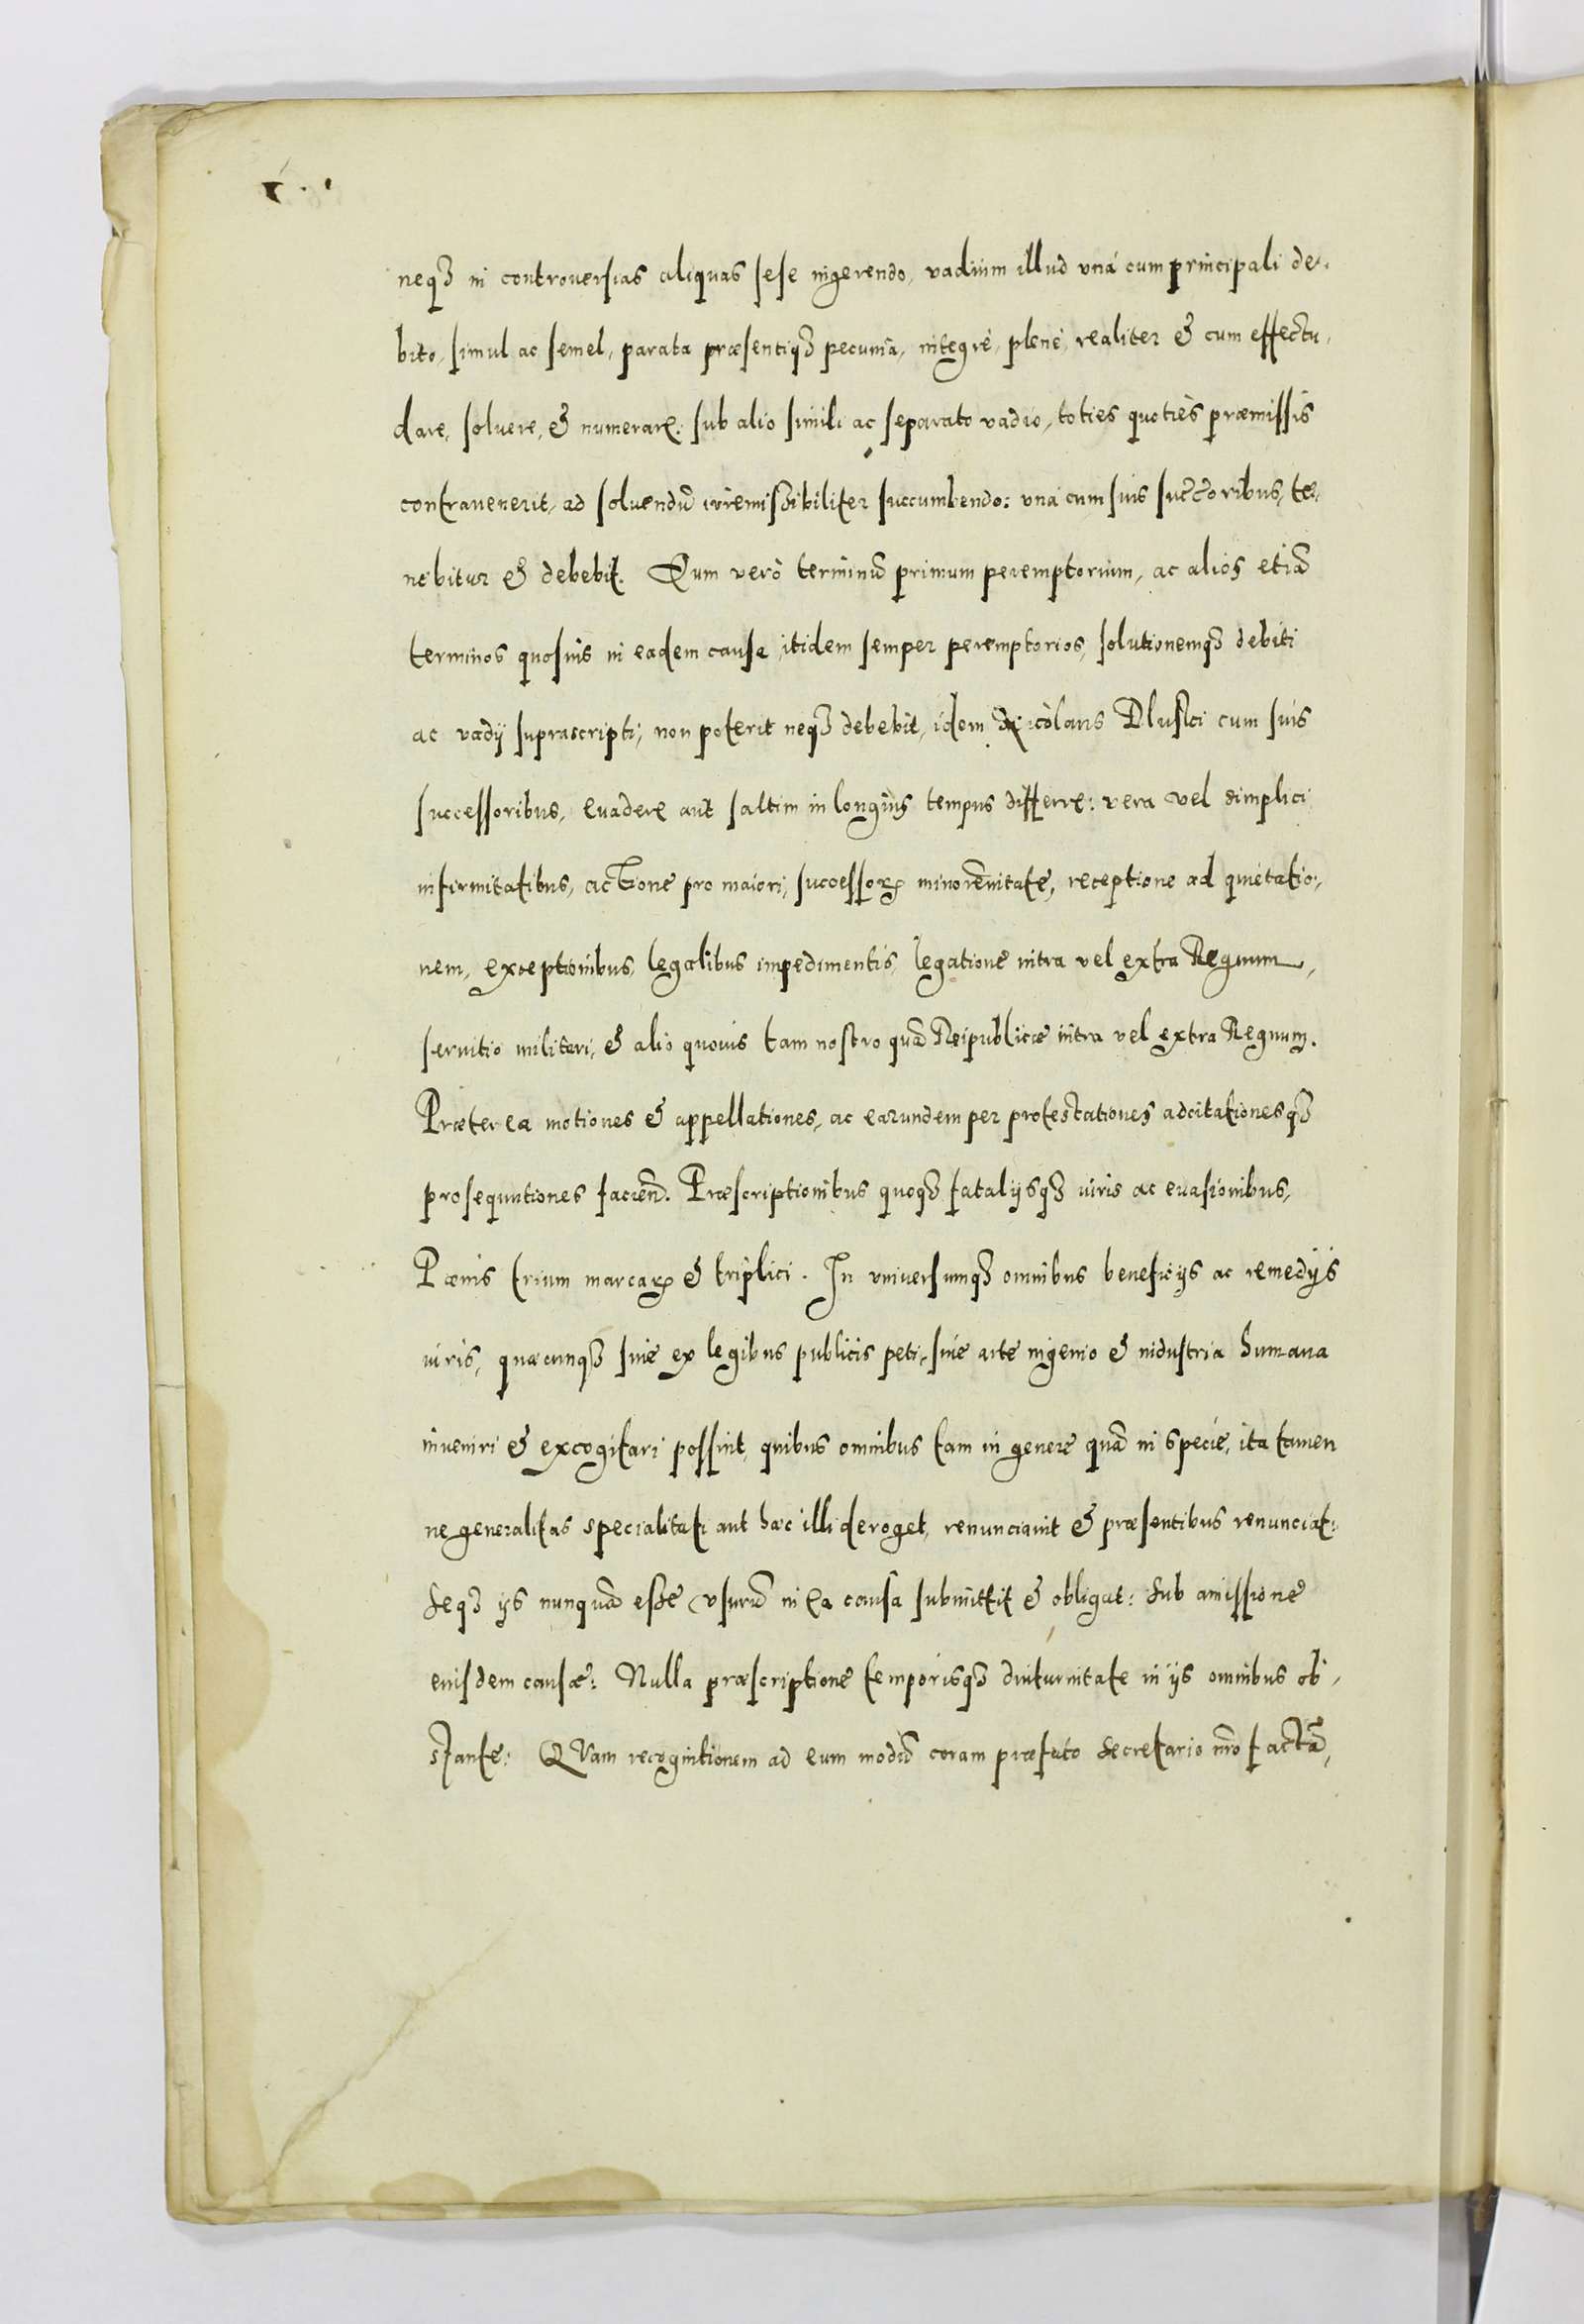 neqȝ in controuersias aliquas sese ingerendo, vadium illud vná cum principali de-
bito, simul ac semel, parata præsentiqȝ pecunia, integrè, plenè, realiter & cum effectu,
dare, soluere, & numerare: sub alio simili ac separato vadio, toties quotiès præmissis
contrauenerit, ad soluendũ irremissibiliter succumbendo: vná cum suis succ̃oribus, te-
nebitur & debebit. Quum verò terminũ primum peremptorium, ac aliós etiã
terminos quosuis in eadem causa, itidem semper peremptorios, solutionemqȝ debiti
ac vadij suprascripti, non poterit neqȝ debebit, idem Nicolaus Dluski cum suis
successoribus, euadere aut saltim in longius tempus differre: vera vel simplici
infirmitatibus, actione pro maiori, successorꝝ minorennitate, receptione ad quietatio-
nem, exceptionibus, legalibus impedimentis, legatione intra vel extra Regnum,
seruitio militari, & alio quouis tam nostro quã Reipublicæ intra vel extra Regnum.
Præterea motiones & appellationes, ac earundem per protestationes adcitationesqȝ
prosequutiones facien̄. Præscriptionibus quoqȝ fatalijsqȝ iuris ac euasionibus,
Pœnis trium marcarꝝ & triplici. In vniversumqȝ omnibus beneficijs ac remedijs
iuris, quæcunqȝ siue ex legibus publicis peti, siue arte ingenio & industria humana
inueniri & excogitari possint, quibus omnibus tam in genere quã in specie, ita tamen
ne generalitas specialitati aut hæc illi deroget, renunciauit & præsentibus renunciat:
seqȝ ijs nunquã esse vsurũ in ea causa submittit & obligat: sub amissione
eiusdem causæ: Nulla præscriptione temporisqȝ diuturnitate in ijs omnibus ob-
stante: QVam recognitionem ad eum modũ coram præfato Secretario nr̃o factã,